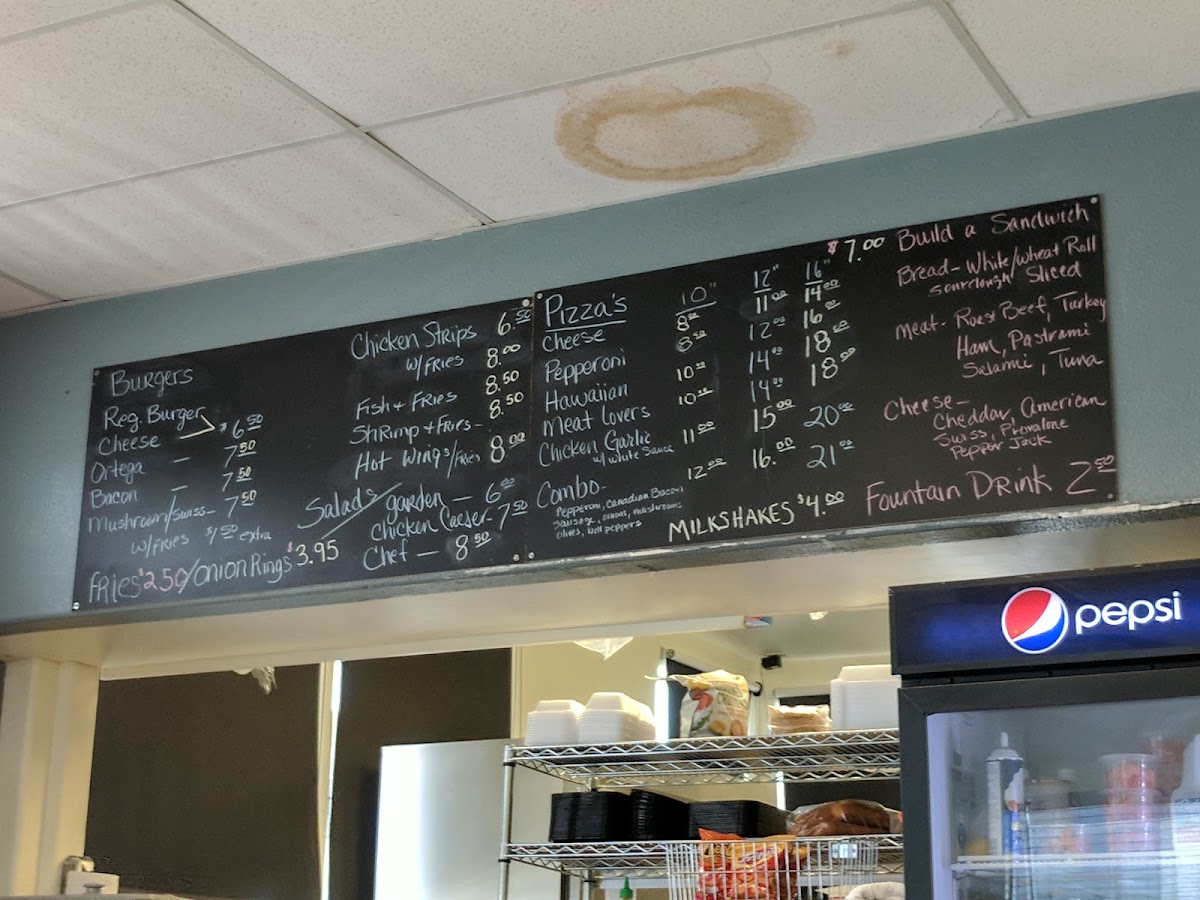 Burgers
Reg. Burger
Cheese $6.50
Ortega — 7.50
Bacon — 7.50
Mushroom/Swiss – 7.50
w/FRIES $1.50 extra
FRIES $2.50/Onion Rings $3.95
Chicken Strips 6.50
w/FRIES 8.00
Fish + FRIES 8.50
Shrimp + Fries – 8.50
Hot Wings/FRIES 8.00
Salads garden — 6.00
Chicken Caeser – 7.50
Chef — 8.50
Pizza's 10" 12" 16"
Cheese 8.00 11.00 14.00
Pepperoni 8.50 12.00 16.00
Hawaiian 10.00 14.00 18.00
Meat Lovers 10.00 14.00 18.00
Chicken Garlic 11.00 15.00 20.00
w/ White Sauce
Combo – 12.00 16.00 21.00
Pepperoni, Canadian Bacon
Sausage, onions, mushrooms
olives, bell peppers
MILKSHAKES $4.00
$7.00 Build a Sandwich
Bread – White/Wheat Roll
Sourdough/Sliced
Meat – Roast Beef, Turkey
Ham, Pastrami
Salami, Tuna
Cheese –
Cheddar, American
Swiss, Provalone
Pepper Jack
Fountain Drink 2.50
pepsi